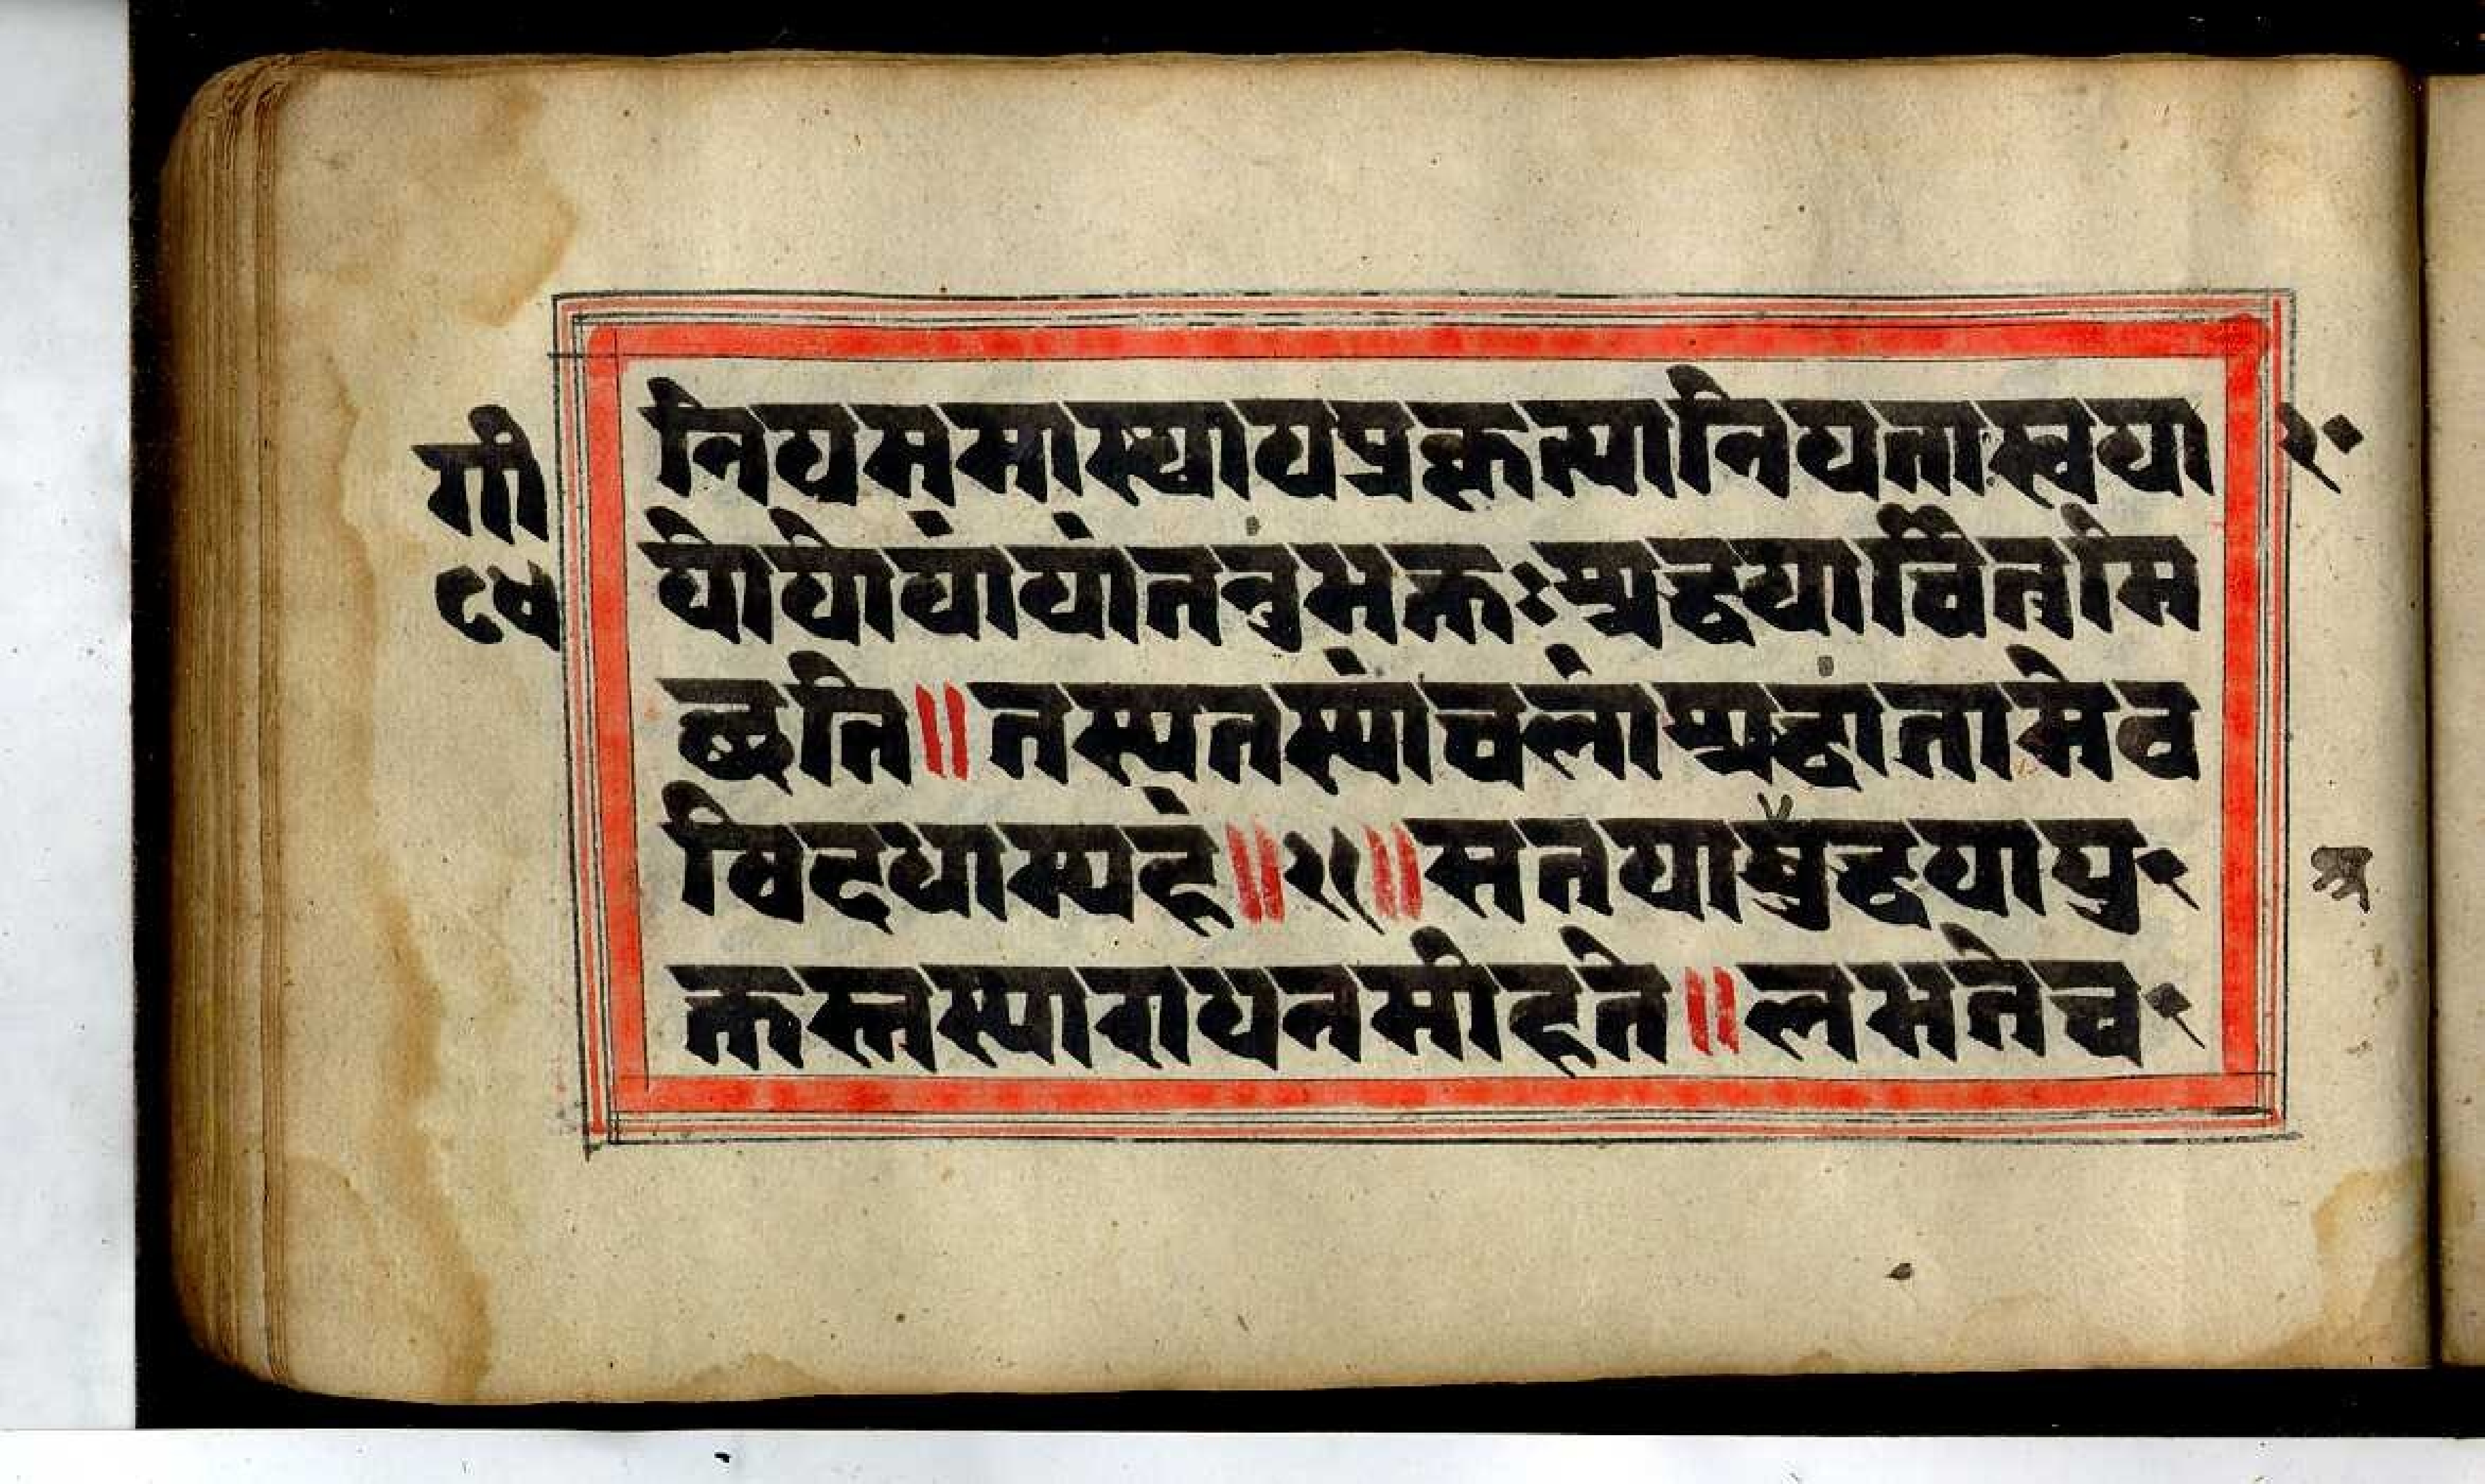 गी
८५
नियममास्थायप्रकृत्यानियतास्वया २०
योयोयांयांतनुभक्तःश्रद्धयार्चितुमि
छति॥तस्यतस्याचलांश्रद्धांतामेव
विदधाम्यहं॥२१॥सतयाश्रद्धयायु
क्तस्तस्याराधनमीहते॥लभतेच
श्र